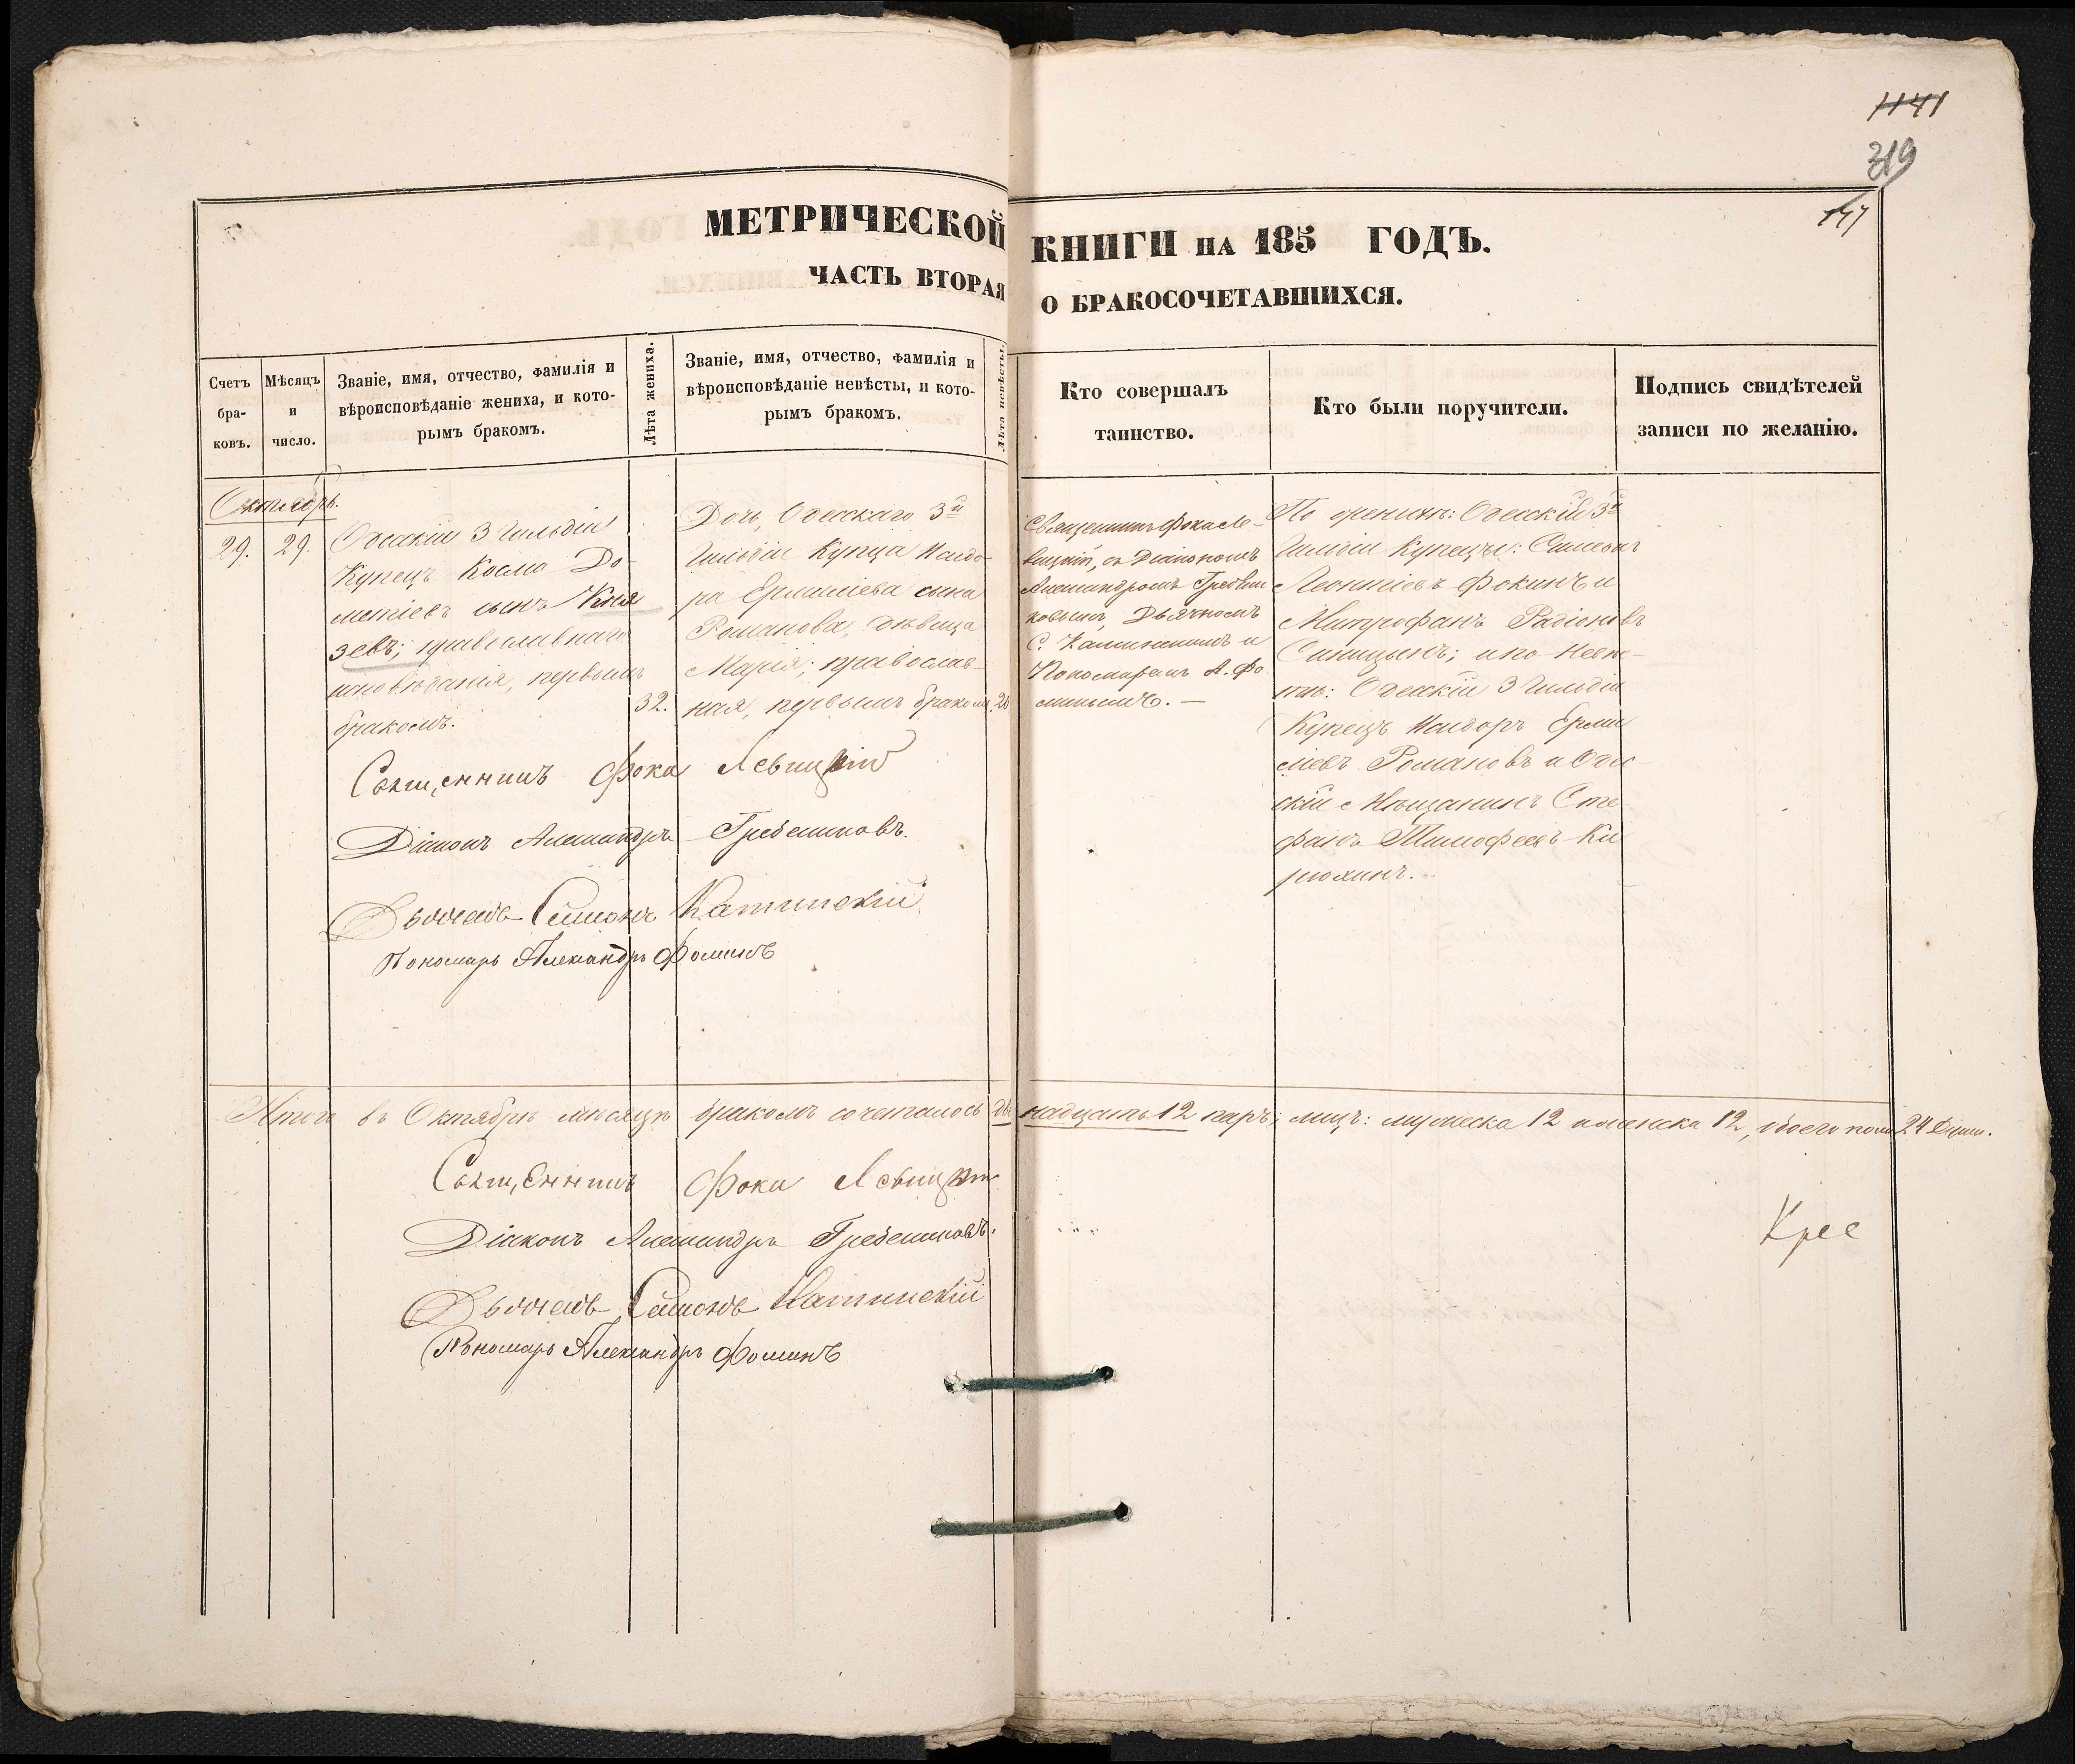 1141
319
147
МЕТРИЧЕСКОЙ КНИГИ НА 185 ГОДЪ.
ЧАСТЬ ВТОРАЯ О БРАКОСОЧЕТАВШИХСЯ.
Счетъ бра-ковъ.
Мѣсяцъ и число.
Званіе, имя, отчество, фамилія и
вѣроисповѣданіе жениха, и кото-
рымъ бракомъ.
Лѣта жениха.
Званіе, имя, отчество, фамилія и
вѣроисповѣданіе невѣсты, и кото-
рымъ бракомъ.
Лѣта невѣсты.
Кто совершалъ
таинство.
Кто были поручители.
Подпись свидѣтелей
записи по желанію.
Октябрь.
29. 29.
Одесскій 3 Гильдіи
Купецъ Косма До-
метіевъ сынъ Кня
зевъ; православнаго
исповѣданія, первымъ
бракомъ.
32.
Дочь, Одесскаго 3й
Гильдіи Купца Исидо-
ра Ермиліева сына
Романова, дѣвица
Марія; православ-
ная, первымъ бракомъ.
20
Священникъ Фока Ле-
вицкій, съ Діакономъ
Александромъ Гребен
ковымъ, Дьячкомъ
С. и
Пономаремъ А. Фо
минымъ. —
По женихѣ: Одесскій 3й
Гильдіи Купецы: Симеонъ
Леонтіевъ Фокинъ и
Митрофанъ Радіоновъ
Синицынъ; и по невѣ-
стѣ: Одесскій 3 Гильдіи
Купецъ Исидоръ Ерми
ліевъ Романовъ и Оде-
скій Мѣщанинъ Сте
фанъ Тимофеевъ Ки
рюхинъ. -
Священникъ Фока Левицкій
Діаконъ Александръ Гребенниковъ.
Дьячекъ Симонъ
Пономарь Александръ Фоминъ
Итого въ Октябрѣ мѣсяцѣ бракомъ сочеталось двѣнадцать 12 паръ; лицъ: мужеска 12 и женска 12, обоего пола 24 Души.
Священникъ Фока Левицкій
Діаконъ Александръ Гребенниковъ.
Дьячекъ Симонъ
Пономарь Александръ Фоминъ
Крее